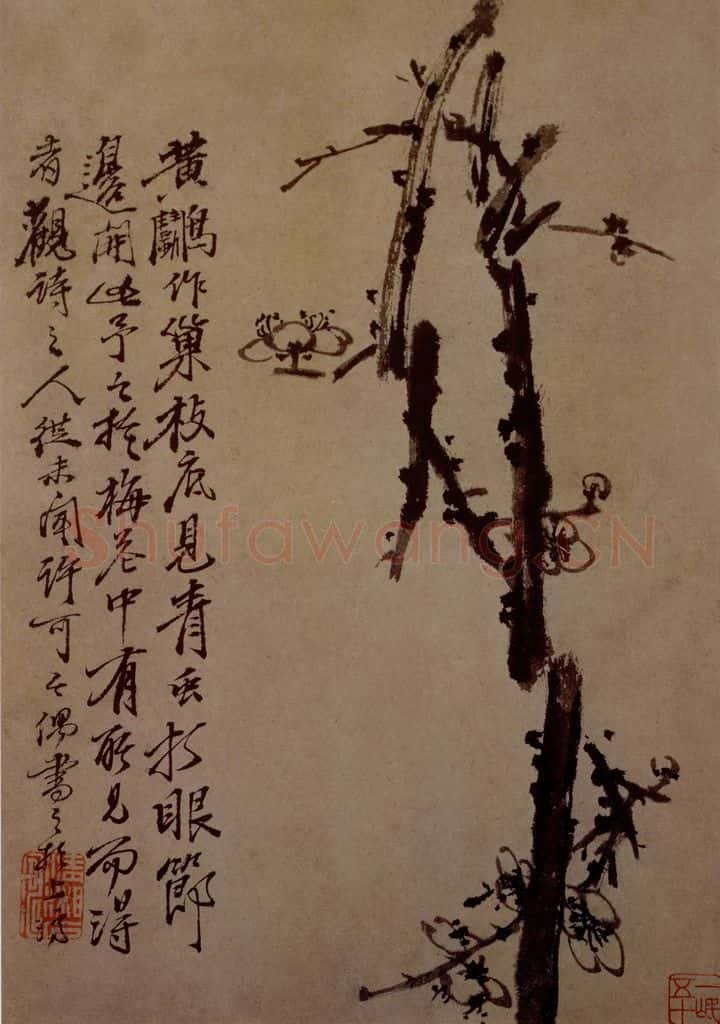 黄鸝作巢枝底見青虫打眼節
邊開此予之於梅花中有所見而得
者觀詩之人從未聞許可也偶書之
Shufawang.CN